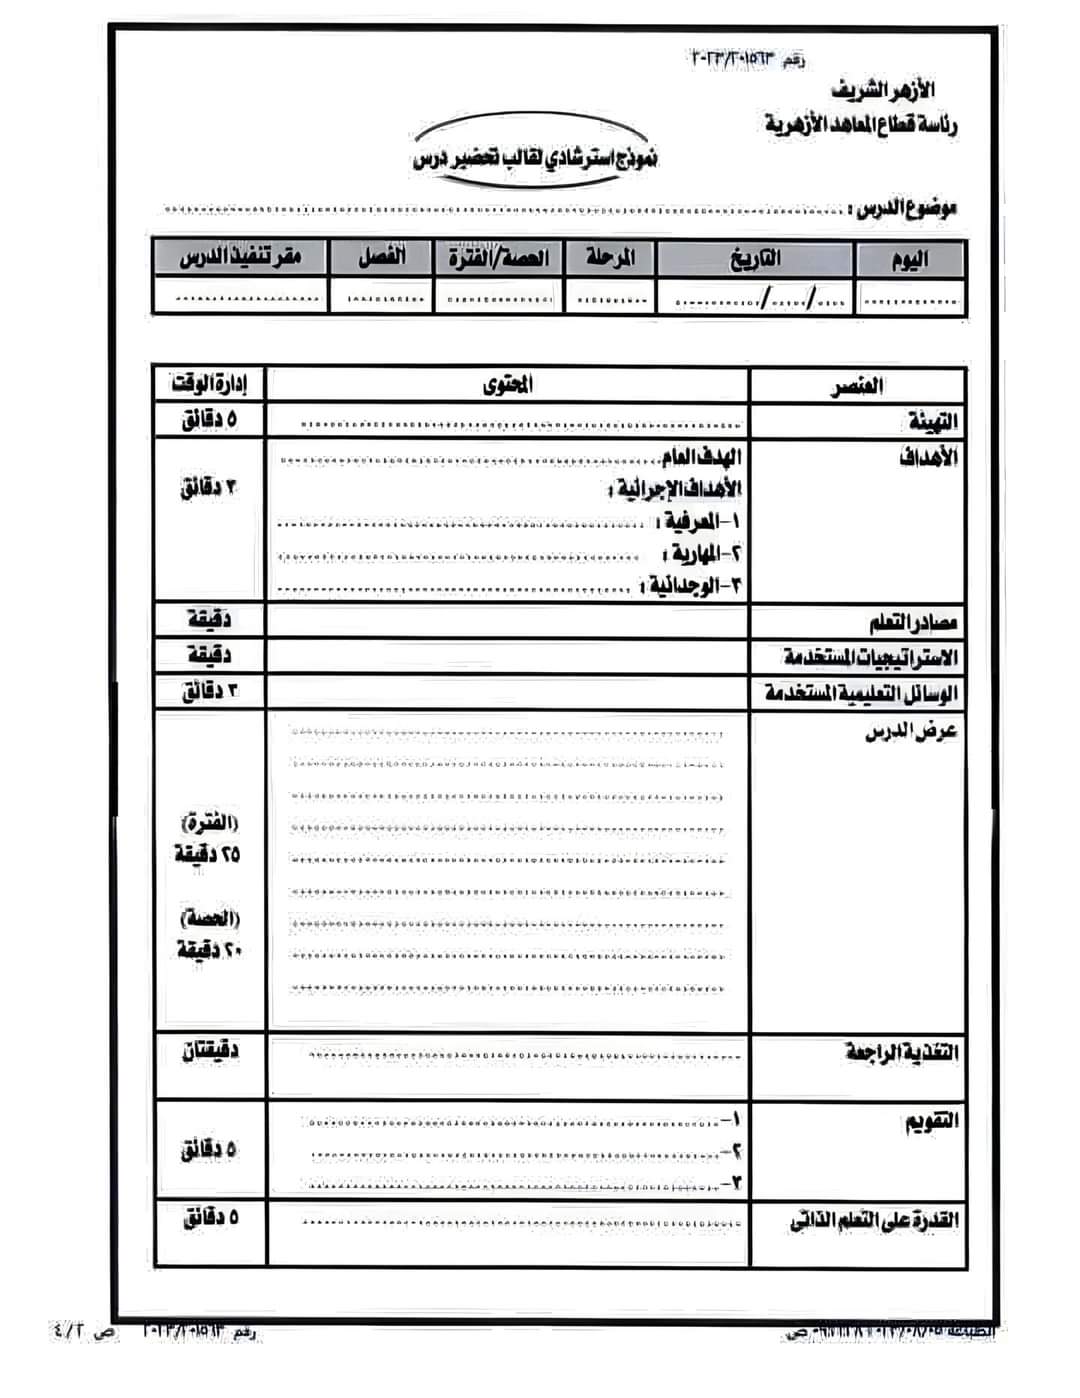 رقم ٢٠٢٣/٢٠١٥٦٣
الأزهر الشريف
رئاسة قطاع المعاهد الأزهرية
نموذج استرشادي لقالب تحضير درس
موضوع الدرس :
اليوم التاريخ المرحلة الحصة/الفترة الفصل مقر تنفيذ الدرس
/ /
العنصر المحتوى إدارة الوقت
التهيئة ٥ دقائق
الأهداف الهدف العام
الأهداف الإجرائية : ٣ دقائق
١-المعرفية :
٢-المهارية :
٣-الوجدانية :
مصادر التعلم دقيقة
الاستراتيجيات المستخدمة دقيقة
الوسائل التعليمية المستخدمة ٣ دقائق
عرض الدرس
(الفترة)
٢٥ دقيقة
(الحصة)
٢٠ دقيقة
التغذية الراجعة دقيقتان
التقويم ١-
٢- ٥ دقائق
٣-
القدرة على التعلم الذاتى ٥ دقائق
رقم ٢٠٢٣/٢٠١٥٦٣ ص ٤/٢
الطباعة ص